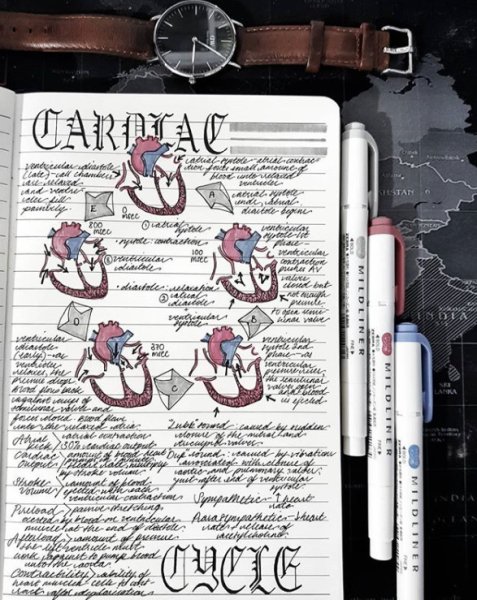 CARDIAC
ventricular diastole
(late) - all chambers
are relaxed
and ventri-
cles fill
passively
atrial systole - atrial contrac-
tion forces small amount of
blood into relaxed
ventricles
E
A
800
msec
0
msec
atrial systole
ends, atrial
diastole begins
① atrial
systole
• systole - contraction
② ventricular
diastole
• diastole - relaxation
② atrial
diastole
ventricular
systole
100
msec
ventricular
systole 1st
phase -
ventricular
contraction
pushes AV
valves
closed but
not enough
pressure
to open semi-
lunar valve
D
B
ventricular
diastole
(early) - as
ventricles
relaxes, the
pressure drops
blood flows back
against cusps of
semilunar valves and
forces closed. Blood flows
into the relaxed atria
370
msec
C
ventricular
systole 2nd
phase - as
ventricular
pressure rises,
the semilunar
valves open
and blood
is ejected
Atrial
kick
atrial contraction
30% cardiac output
Cardiac
output
amount of blood heart
heart rate multiply
by stroke volume
Stroke
volume
amount of blood
ejected with each
ventricular contraction
Preload
exerted by blood on ventricular
muscle at the end of diastole
Afterload
amount of pressure
the left ventricle must
work against to pump blood
into the aorta
Contractibility
ability of
heart muscle cells to
after depolarization
"Lubb" sound: caused by sudden
closure of the mitral and
tricuspid valves
Dup sound: caused by vibration
associated with closure of
aortic and pulmonary valves
just after end of ventricular
systole
Sympathetic - ↑ heart
rate
Parasympathetic - heart
rate, release of
acetylcholine
CYCLE
MILDLINER
MILDLINER
MILDLINER
INDIA
SRI
LANKA